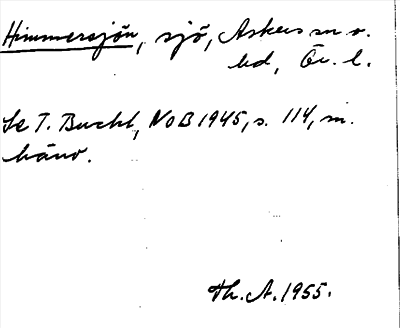 Himmersjön, sjö, Askers sn o.
hd, Ör. l.
Se T. Bucht, NoB 1945, s. 114, m.
hänv.
Th. A. 1955.